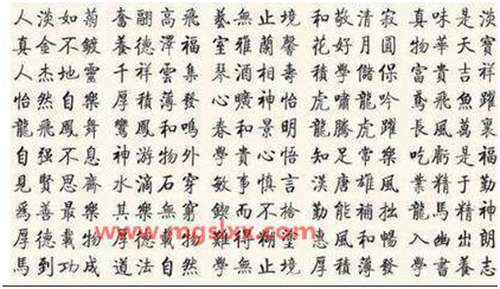 人淡如菊 奮翮高飛 藝無止境 和敬清寂 真味是淡
真金不鍍 養德澤福 室雅蘭馨 花好月圓 物華天寶
人杰地靈 千祥雲集 琴 酒 相壽 積學儲 富貴吉祥
怡然自樂 厚積薄發 心曠神怡 虎嘯龍吟 鳶飛魚躍
龍飛鳳舞 鸞鳳和鳴 春和景明 龍騰虎躍 長風萬里
自强不息 神游物外 貴心悟 知足常樂 吃虧是福
見賢思齋 水滴石穿 敏事慎言 漢唐雄風 業精于勤
爲善最樂 其樂無窮 鍥而不捨 勤能補拙 龍馬精神
厚德載物 厚德載物 惠風和暢 入幽出朗
馬到功成 道法自然 學無止境 厚積薄發 學書養志
www.mgslxx.com